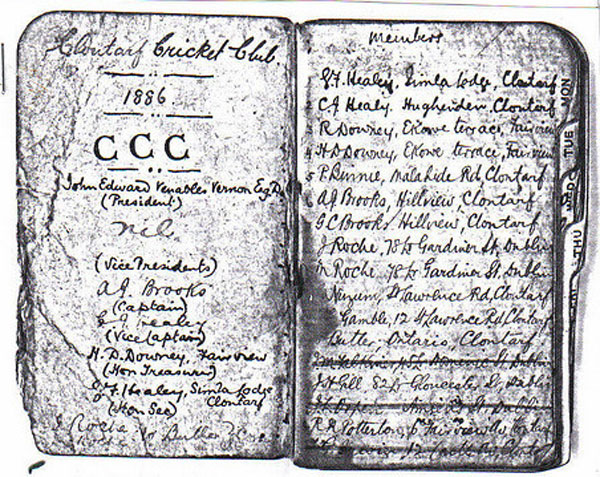 Clontarf Cricket Club
1886.
CCC
John Edward Venables Vernon Esq D.L
(President)
nil.
(Vice Presidents)
A J Brooks
(Captain)
C J Healey
(Vice Captain)
H. D. Downey, Fairview
(Hon Treasurer)
Healey, Simla Lodge
Clontarf
(Hon Sec)
J Roche Butler
Members
Healey, Simla Lodge, Clontarf
C J Healey. Hughenden, Clontarf
R Downey, Ekowe terrace, Fairview
H D Downey, Ekowe terrace, Fairview
5 P Rennie, Malahide Rd Clontarf
A J Brooks, Hillview, Clontarf
G C Brooks Hillview, Clontarf
J Roche, 78 Lr Gardiner St, Dublin
Roche, 78 Lr Gardiner St, Dublin
St Lawrence Rd, Clontarf
Gamble, 12 St Lawrence Rd Clontarf
Butler, Ontario, Clontarf
St Dublin
J H Gill 82 Lr Gloucester St, Dublin
St Dublin
R R Potterton, Fairview
MON
TUE
WED
THU